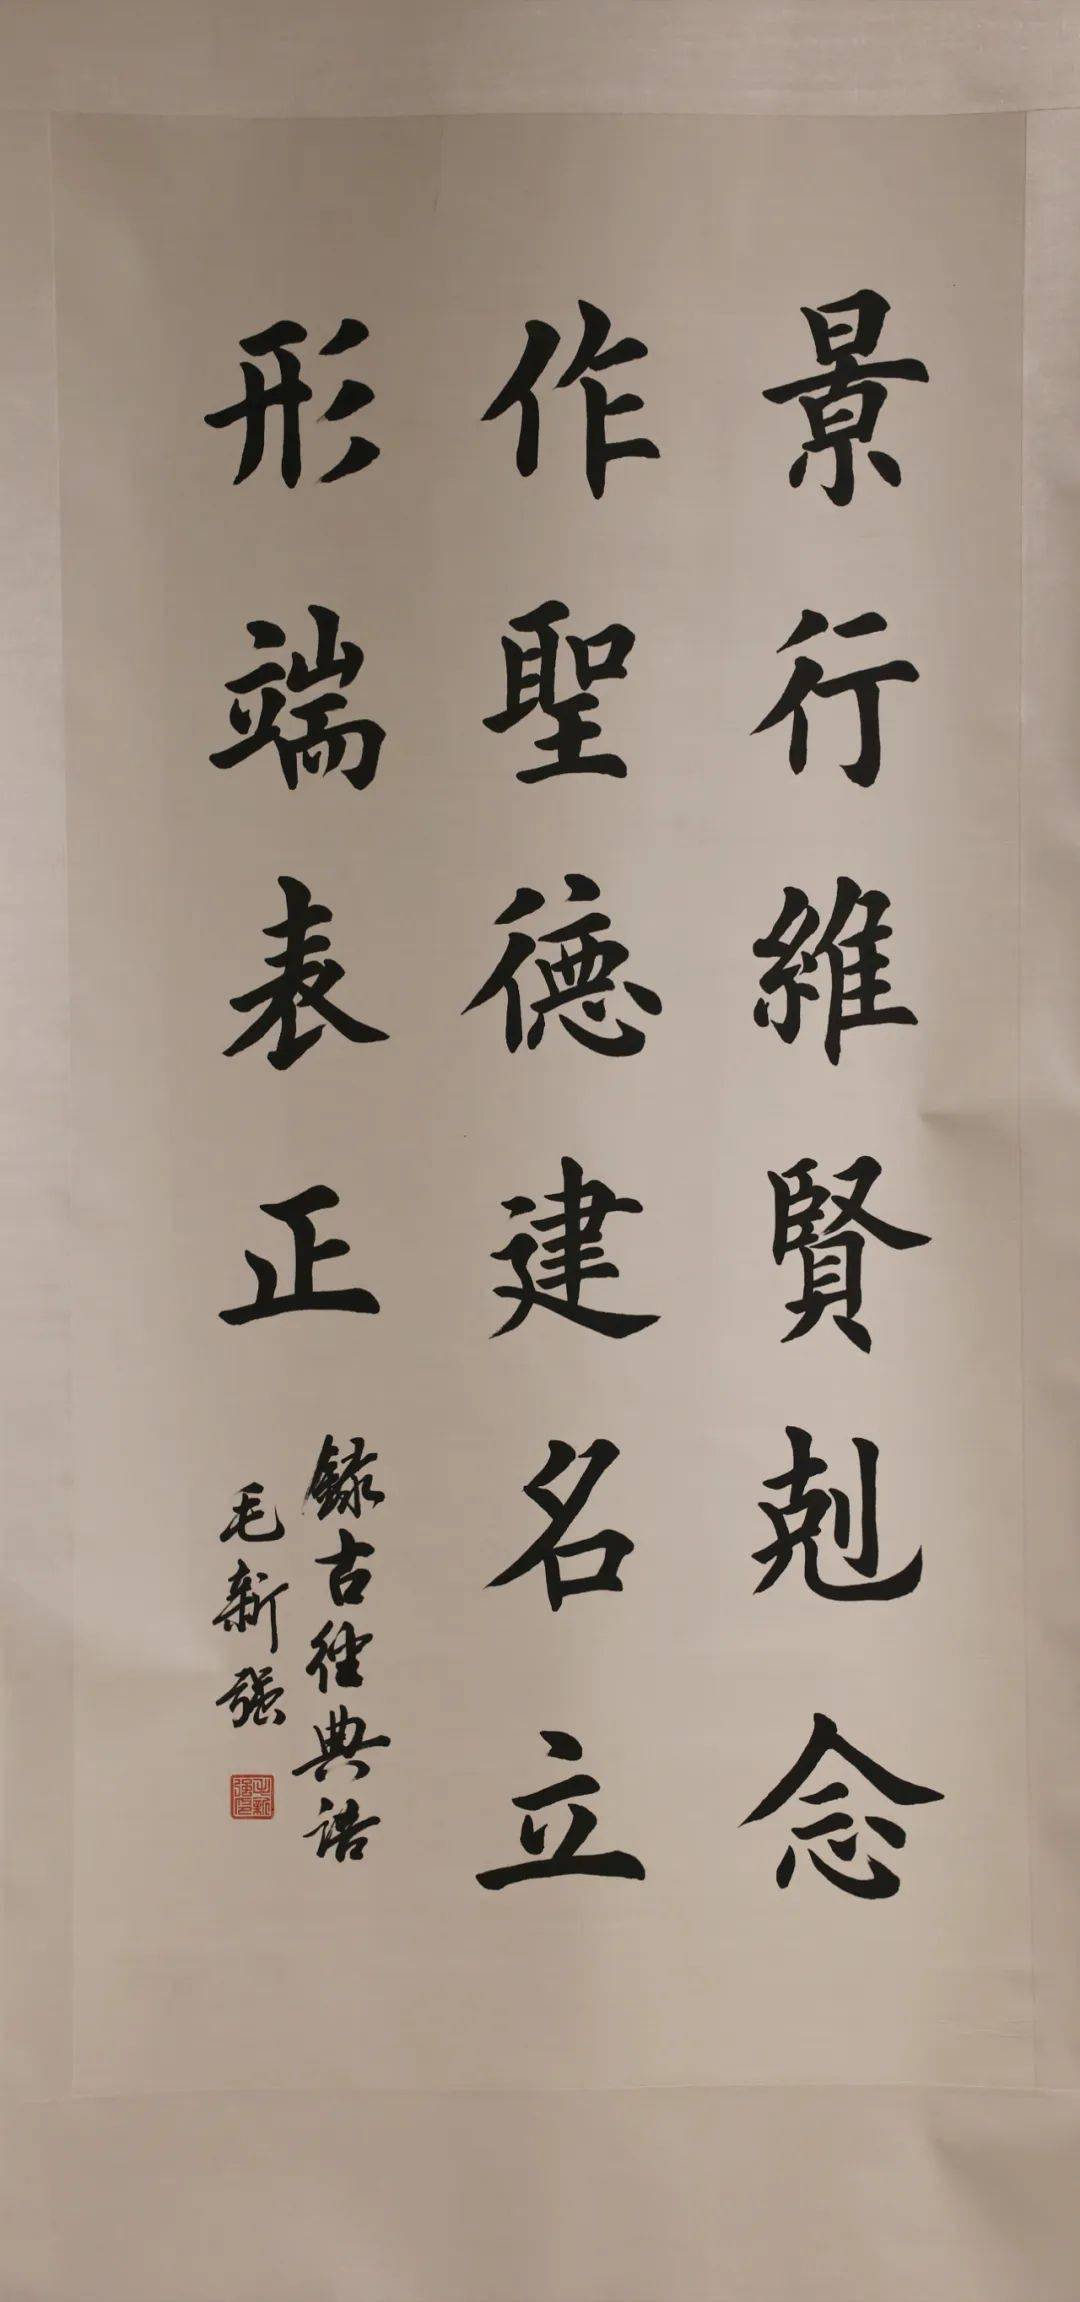 景行維賢剋念
作聖德建名立
形端表正
錄古經典語
毛新强